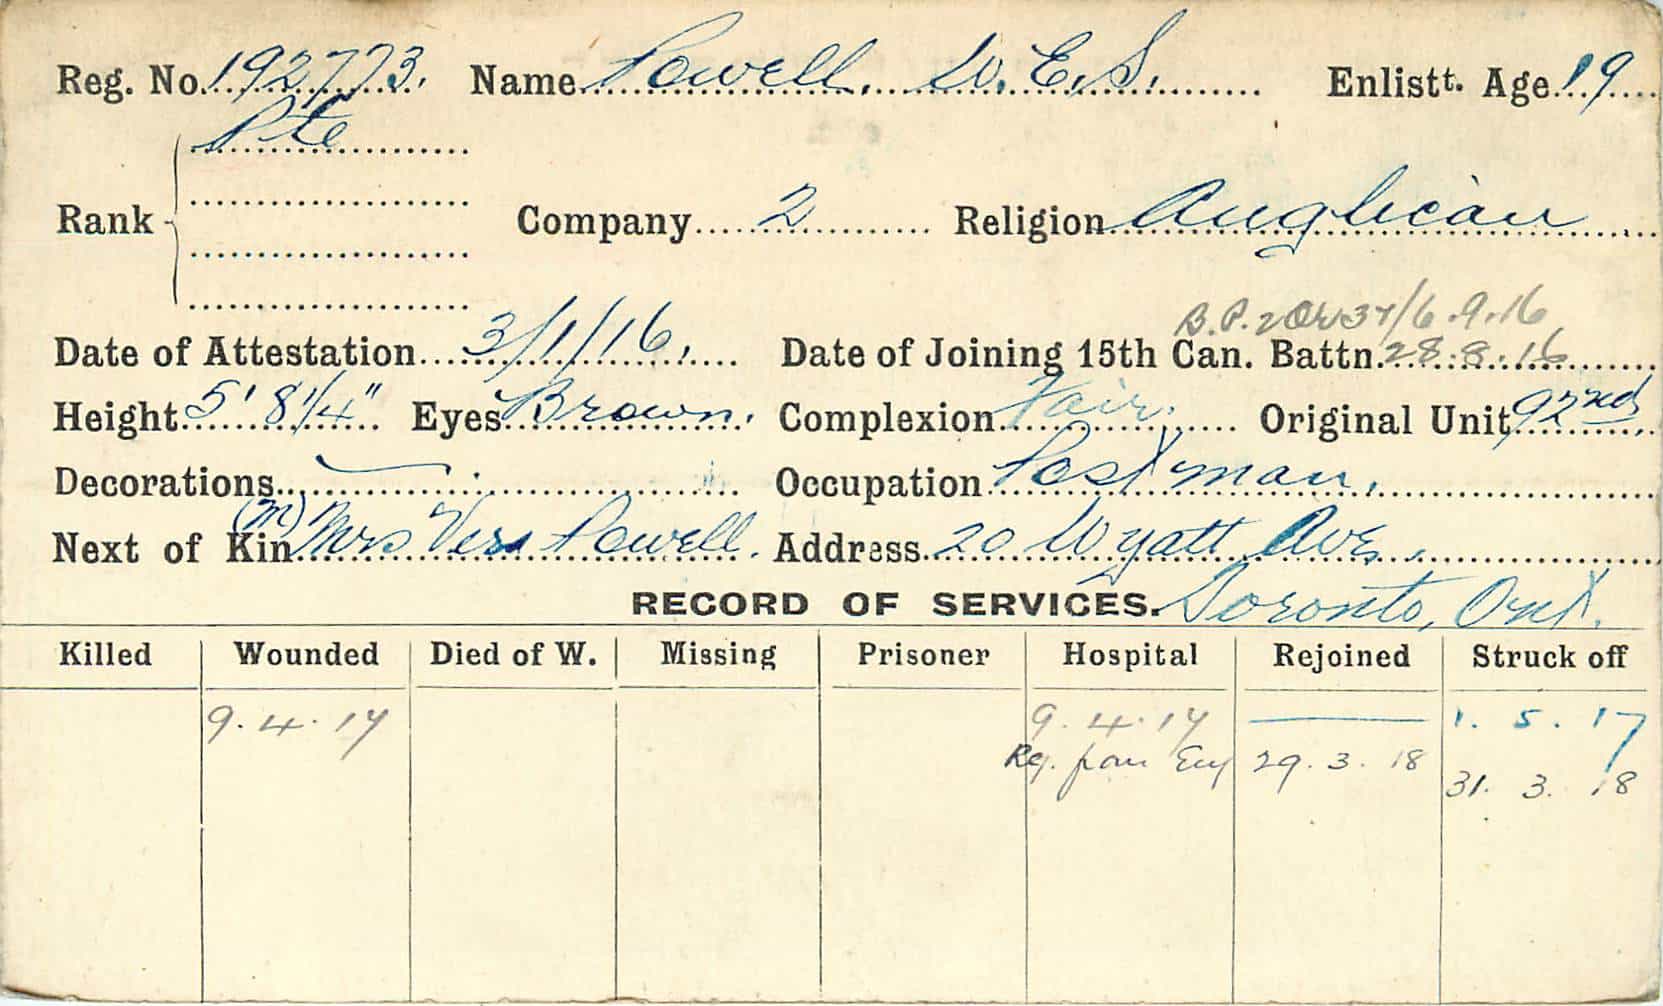 Reg. No. 192773. Name Powell. W. E. S. Enlistt. Age 19
Pte
Rank Company 2 Religion Anglican
B.P. 2 37/6.9.16
Date of Attestation 3/1/16. Date of Joining 15th Can. Battn. 28.8.16
Height 5' 8 1/4" Eyes Brown. Complexion Fair. Original Unit 92nd
Decorations — Occupation Postman.
Next of Kin (M) Mrs Vera Powell. Address 20 Wyatt Ave.
RECORD OF SERVICES. Toronto, Ont.
Killed Wounded Died of W. Missing Prisoner Hospital Rejoined Struck off
9.4.17 9.4.17 — 1.5.17
from Eng 29.3.18 31.3.18